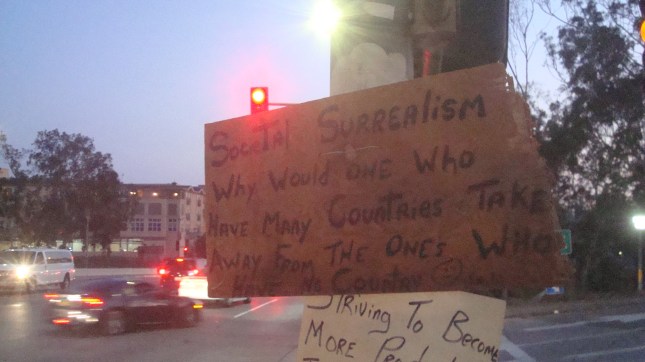 Societal Surrealism
Why Would One Who
Have Many Countries Take
Away From The Ones Who
Have No Country
Striving To Become
More